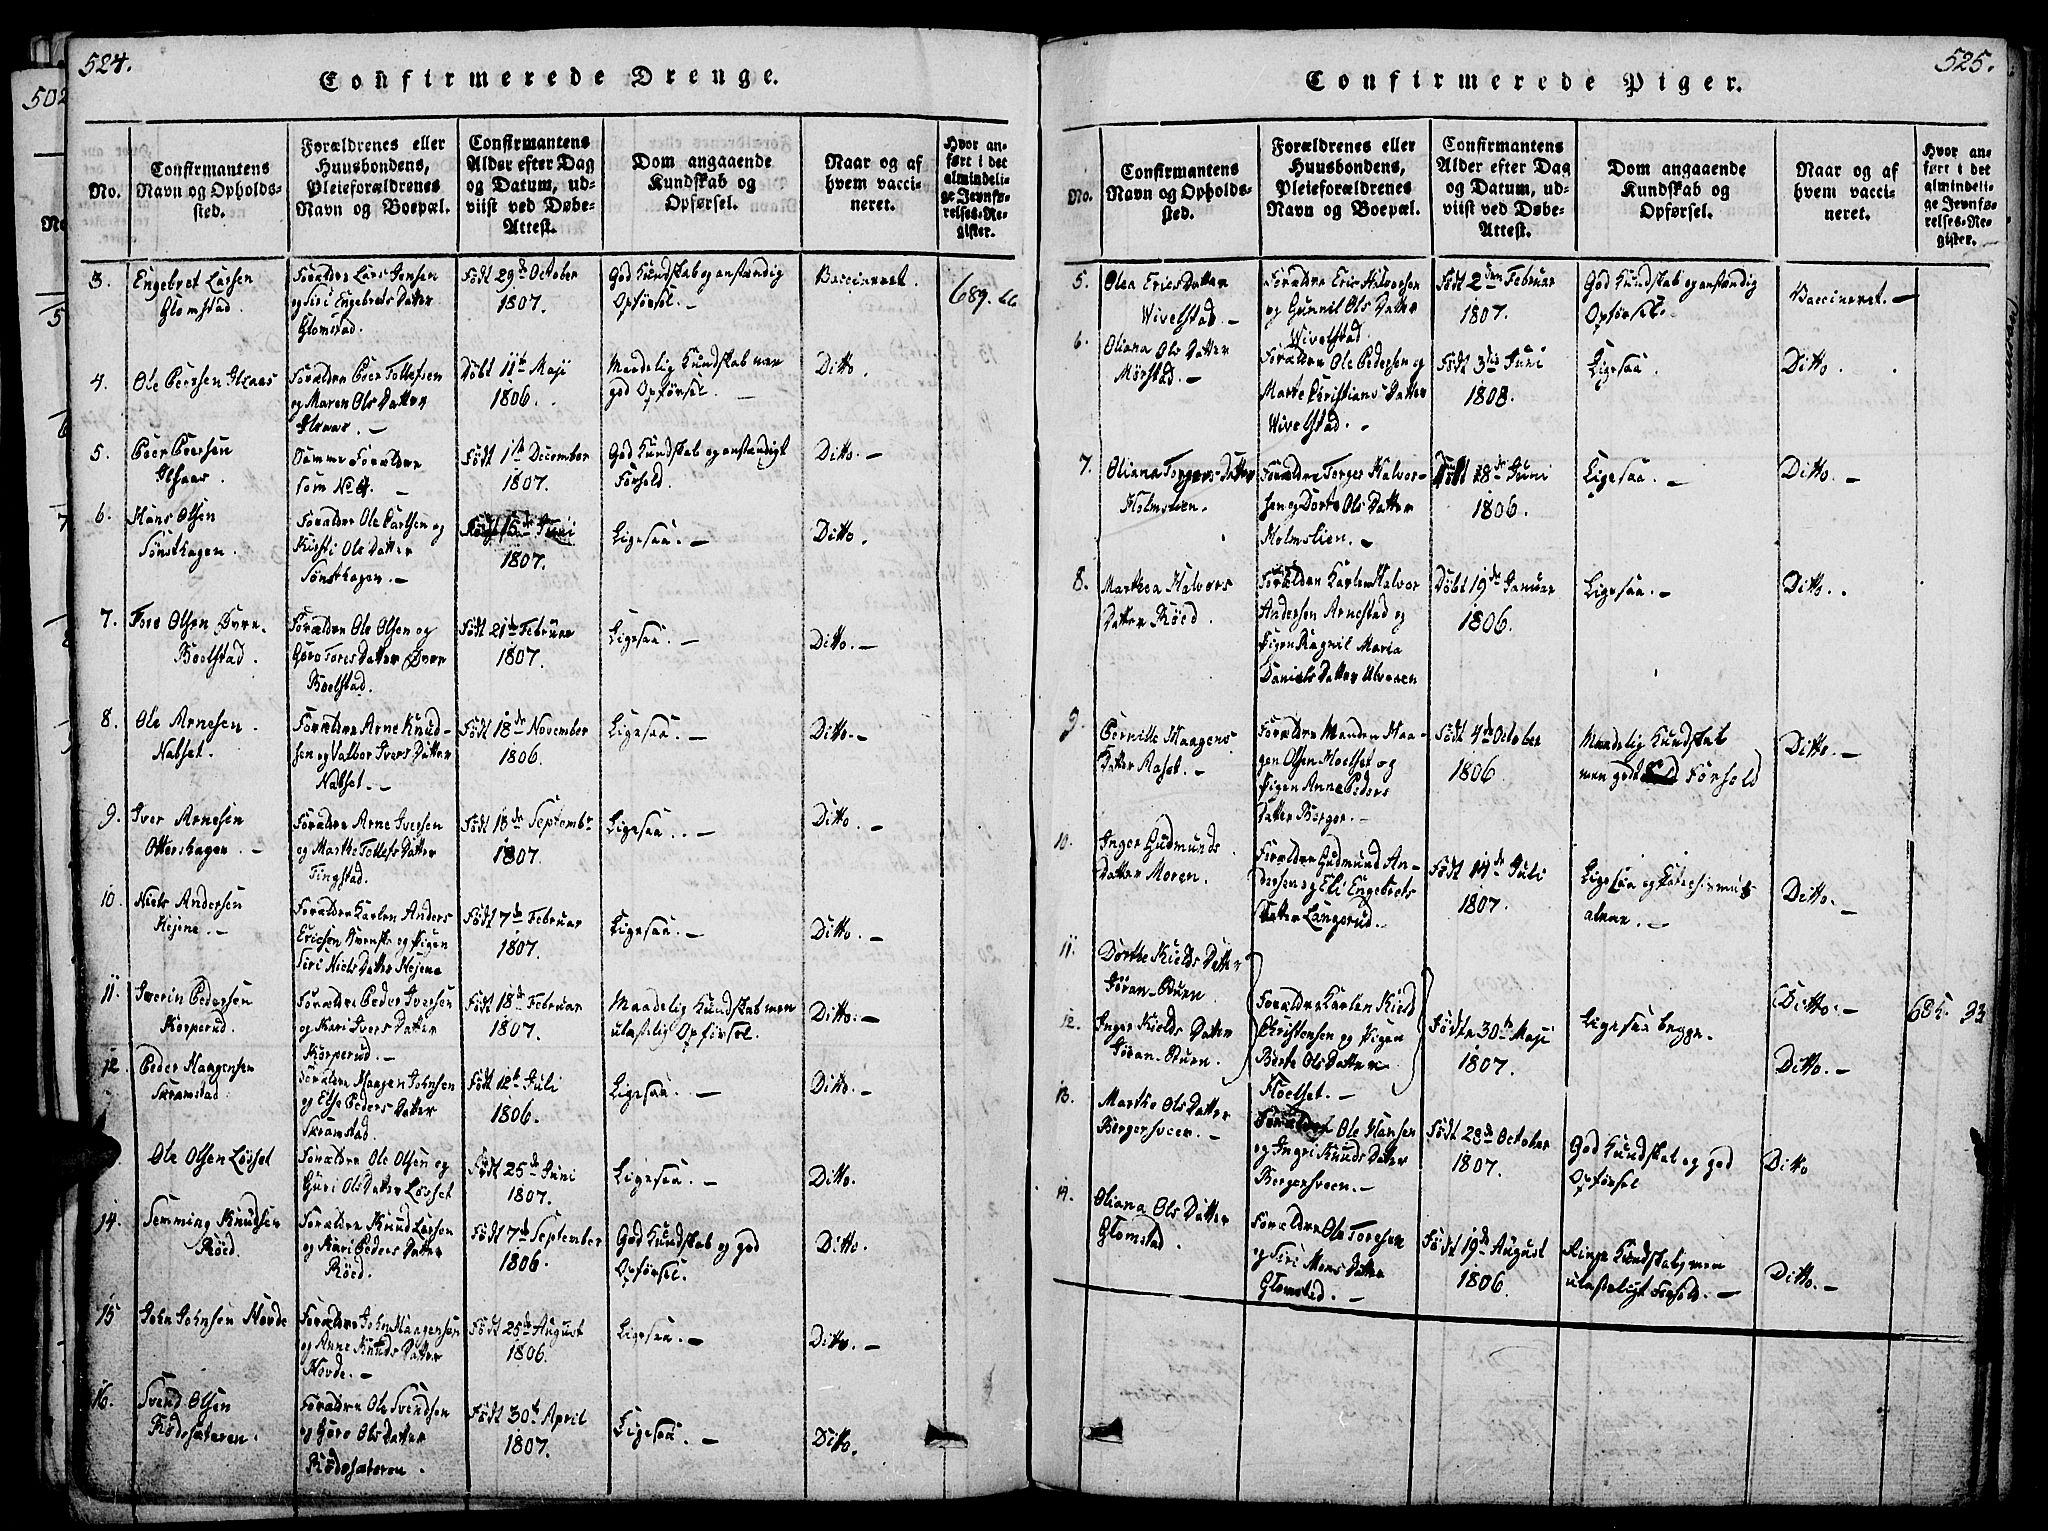 524.
Confirmerede Drenge.
No.
Confirmantens
Navn og Opholds-
sted.
Forældrenes eller
Huusbondens,
Pleieforældrenes
Navn og Boepæl.
Confirmantens
Alder efter Dag
og Datum, ud-
viist ved Døbe-
Attest.
Dom angaaende
Kundskab og
Opførsel.
Naar og af
hvem vacci-
neret.
Hvor an-
ført i det
almindeli-
ge Jevnfø-
relses-Re-
gister.
3.
Engebret Larsen
Glomstad.
Forældre Lars Jensen
og Siri Engebrets Datter
Glomstad.
Født 29de October
1807.
God Kundskab og anstændig
Opførsel. -
Vaccineret.
689. 66
4.
Ole Peersen
Forældre Peer Tollefsen
og Maren Ols Datter
Døbt 11te Maji
1806.
Maadelig Kundskab men
god Opførsel.
Ditto.
5.
Peer Peersen
Samme Forældre
som No 4. -
Født 1te December
1807.
God Kundskab og anstændigt
Forhold.
Ditto. -
6.
Hans Olsen
Tønsthagen.
Forældre Ole Carlsen og
Kisti Ols Datter
Tønsthagen. -
Født 15de Juni
1807.
Ligesaa. -
Ditto.
7.
Tore Olsen Øvre-
Boelstad.
Forældre Ole Olsen og
Gøro Tores Datter Øvre
Boelstad.
Født 21de Februar
1807.
Ligesaa. -
Ditto. -
8.
Ole Arnesen.
Nabset.
Forældre Arne Knud-
sen og Valbor Ivers Datter
Nabset. -
Født 18de November
1806.
Ligesaa. -
Ditto. -
9.
Iver Arnesen
Ottershagen. -
Forældre Arne Iversen
og Marthe Tollefs Datter
Tingstad.
Født 13de Septembr
1807.
Ligesaa. -
Ditto. -
10.
Niels Andersen
Hejene. -
Forældre Karlen Anders
Ericsen Svensk og Pigen
Siri Niels Datter Hejene
Født 7de Februar
1807.
Ligesaa. -
Ditto. -
11.
Iverin Pedersen
Korperud.
Forældre Peder Iversen
og Kari Ivers Datter
Korperud. -
Født 18de Februar
1807.
Maadelig Kundskab men
ulastelig Opførsel.
Ditto. -
12.
Peder Haagensen
Skramstad.
Forældre Haagen Johnsen
og Else Peders Datter
Skramstad.
Født 12te Juli
1806.
Ligesaa. -
Ditto. -
Ole Olsen Løvset
Forældre Ole Olsen og
Guri Ols Datter Løvset
Født 25de Juni
1807.
Ligesaa. -
Ditto.
14.
Semming Knudsen
Røed.
Forældre Knud Larsen
og Kari Peders Datter
Røed.
Født 7de September
1806.
God Kundskab og god
Opførsel.
Ditto.
15
John Johnsen Hovde
Forældre John Haagensen
og Anne Knuds Datter
Hovde. -
Født 25de August
1806.
Ligesaa. -
Ditto. -
16.
Svend Olsen
Rødsæteren.
Forældre Ole Svendsen
og Gøro Ols Datter
Rødsæteren.
Født 30te April
1807.
Ligesaa. -
Ditto.
525.
Confirmerede Piger.
No.
Confirmantens
Navn og Opholds-
sted.
Forældrenes eller
Huusbondens,
Pleieforældrenes
Navn og Boepæl.
Confirmantens
Alder efter Dag
og Datum, ud-
viist ved Døbe-
Attest.
Dom angaaende
Kundskab og
Opførsel.
Naar og af
hvem vacci-
neret.
Hvor an-
ført i det
almindeli-
ge Jevnfø-
relses-Re-
gister.
5.
Olea Erics Datter
Wivelstad. -
Forældre Eric Halvorsen
og Gunnil Ols Datter
Wivelstad.
Født 2den Februar
1807.
God Kundskab og anstændig
Opførsel. -
Vaccineret. -
6.
Oliana Ols Datter
Mørstad. -
Forældre Ole Pedersen og
Marte Christians Datter
Wivelstad. -
Født 3die Juni
1808.
Ligesaa.
Ditto.
7.
Oliana Torgers Datter
Holmslien.
Forældre Torger Halvor-
sen og Dorte Ols Datter
Holmslien. -
18de Juni
1806.
Ligesaa. -
Ditto. -
8.
Marthea Halvors
Datter Røed
Forældre Karlen Halvor
Andersen Arnestad og
Pigen Ragnil Maria
Daniels Datter Ulveen
Døbt 19de Januar
1806.
Ligesaa. -
Ditto.
9.
Pernille Haagens
Datter Aaset. -
Forældre Manden Haa-
gen Olsen Moelset og
Pigen Anne Peders
Datter Berger. -
Født 4de October
1806
Maadelig Kundskab
men godt Forhold
Ditto. -
10.
Inger Gudmunds
Datter Moren.
Forældre Gudmund An-
dersen og Eli Engebrets
Datter Langerud. -
Født 14de Juli
1807.
Ligesaa og Katechismus
alene. -
Ditto. -
11.
Dorthe Kields Datter
Joran-Stuen.
12.
Inger Kields Datter
Joran-Stuen.
Forældre Karlen Kield
Christensen og Pigen
Berte Ols Datter
Floelset. -
Fødte 30te Maji
1807.
Ligesaa begge.
Ditto. -
685. 33
Ditto. -
13.
Marthe Ols Datter
Bergersveen. -
Forældre Ole Hansen
og Ingri Knuds Datter
Bergersveen. -
Født 23de October
1807.
God Kundskab og god
Opførsel
Ditto
14.
Oliana Ols Datter
Glomstad.
Forældre Ole Toresen
og Siri Mons Datter
Glomsted. -
Født 19de August
1806.
Ringe Kundskab, men
ulasteligt Forhold. -
Ditto. -